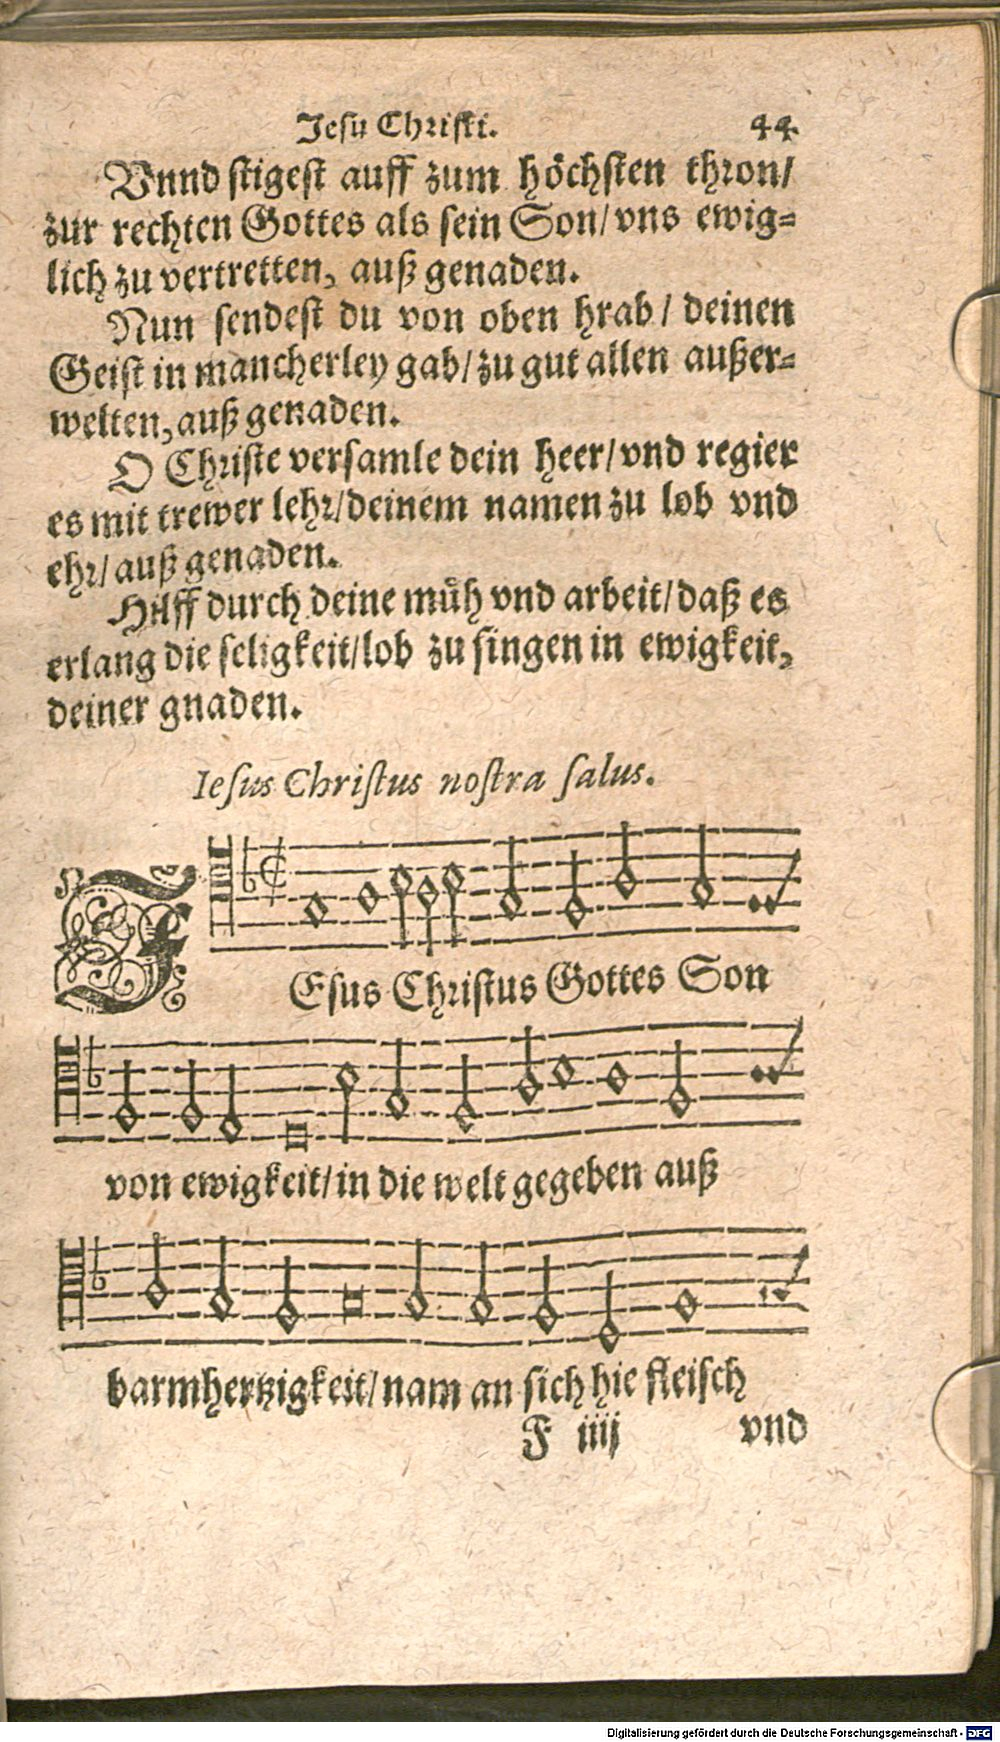 Jesu Christi. 44
Vnnd stigest auff zum höchsten thron/
zur rechten Gottes als sein Son/vns ewig-
lich zu vertretten, auß genaden.
Nun sendest du von oben hrab/ deinen
Geist in mancherley gab/zu gut allen außer-
welten, auß genaden.
O Christe versamle dein heer/vnd regier
es mit trewer lehr/deinem namen zu lob vnd
ehr/auß genaden.
Hilff durch deine můh vnd arbeit/daß es
erlang die seligkeit/lob zu singen in ewigkeit,
deiner gnaden.
Iesus Christus nostra salus.
JEsus Christus Gottes Son
von ewigkeit/in die welt gegeben auß
barmhertzigkeit/nam an sich hie fleisch
F iiij vnd
Digitalisierung gefördert durch die Deutsche Forschungsgemeinschaft - DFG